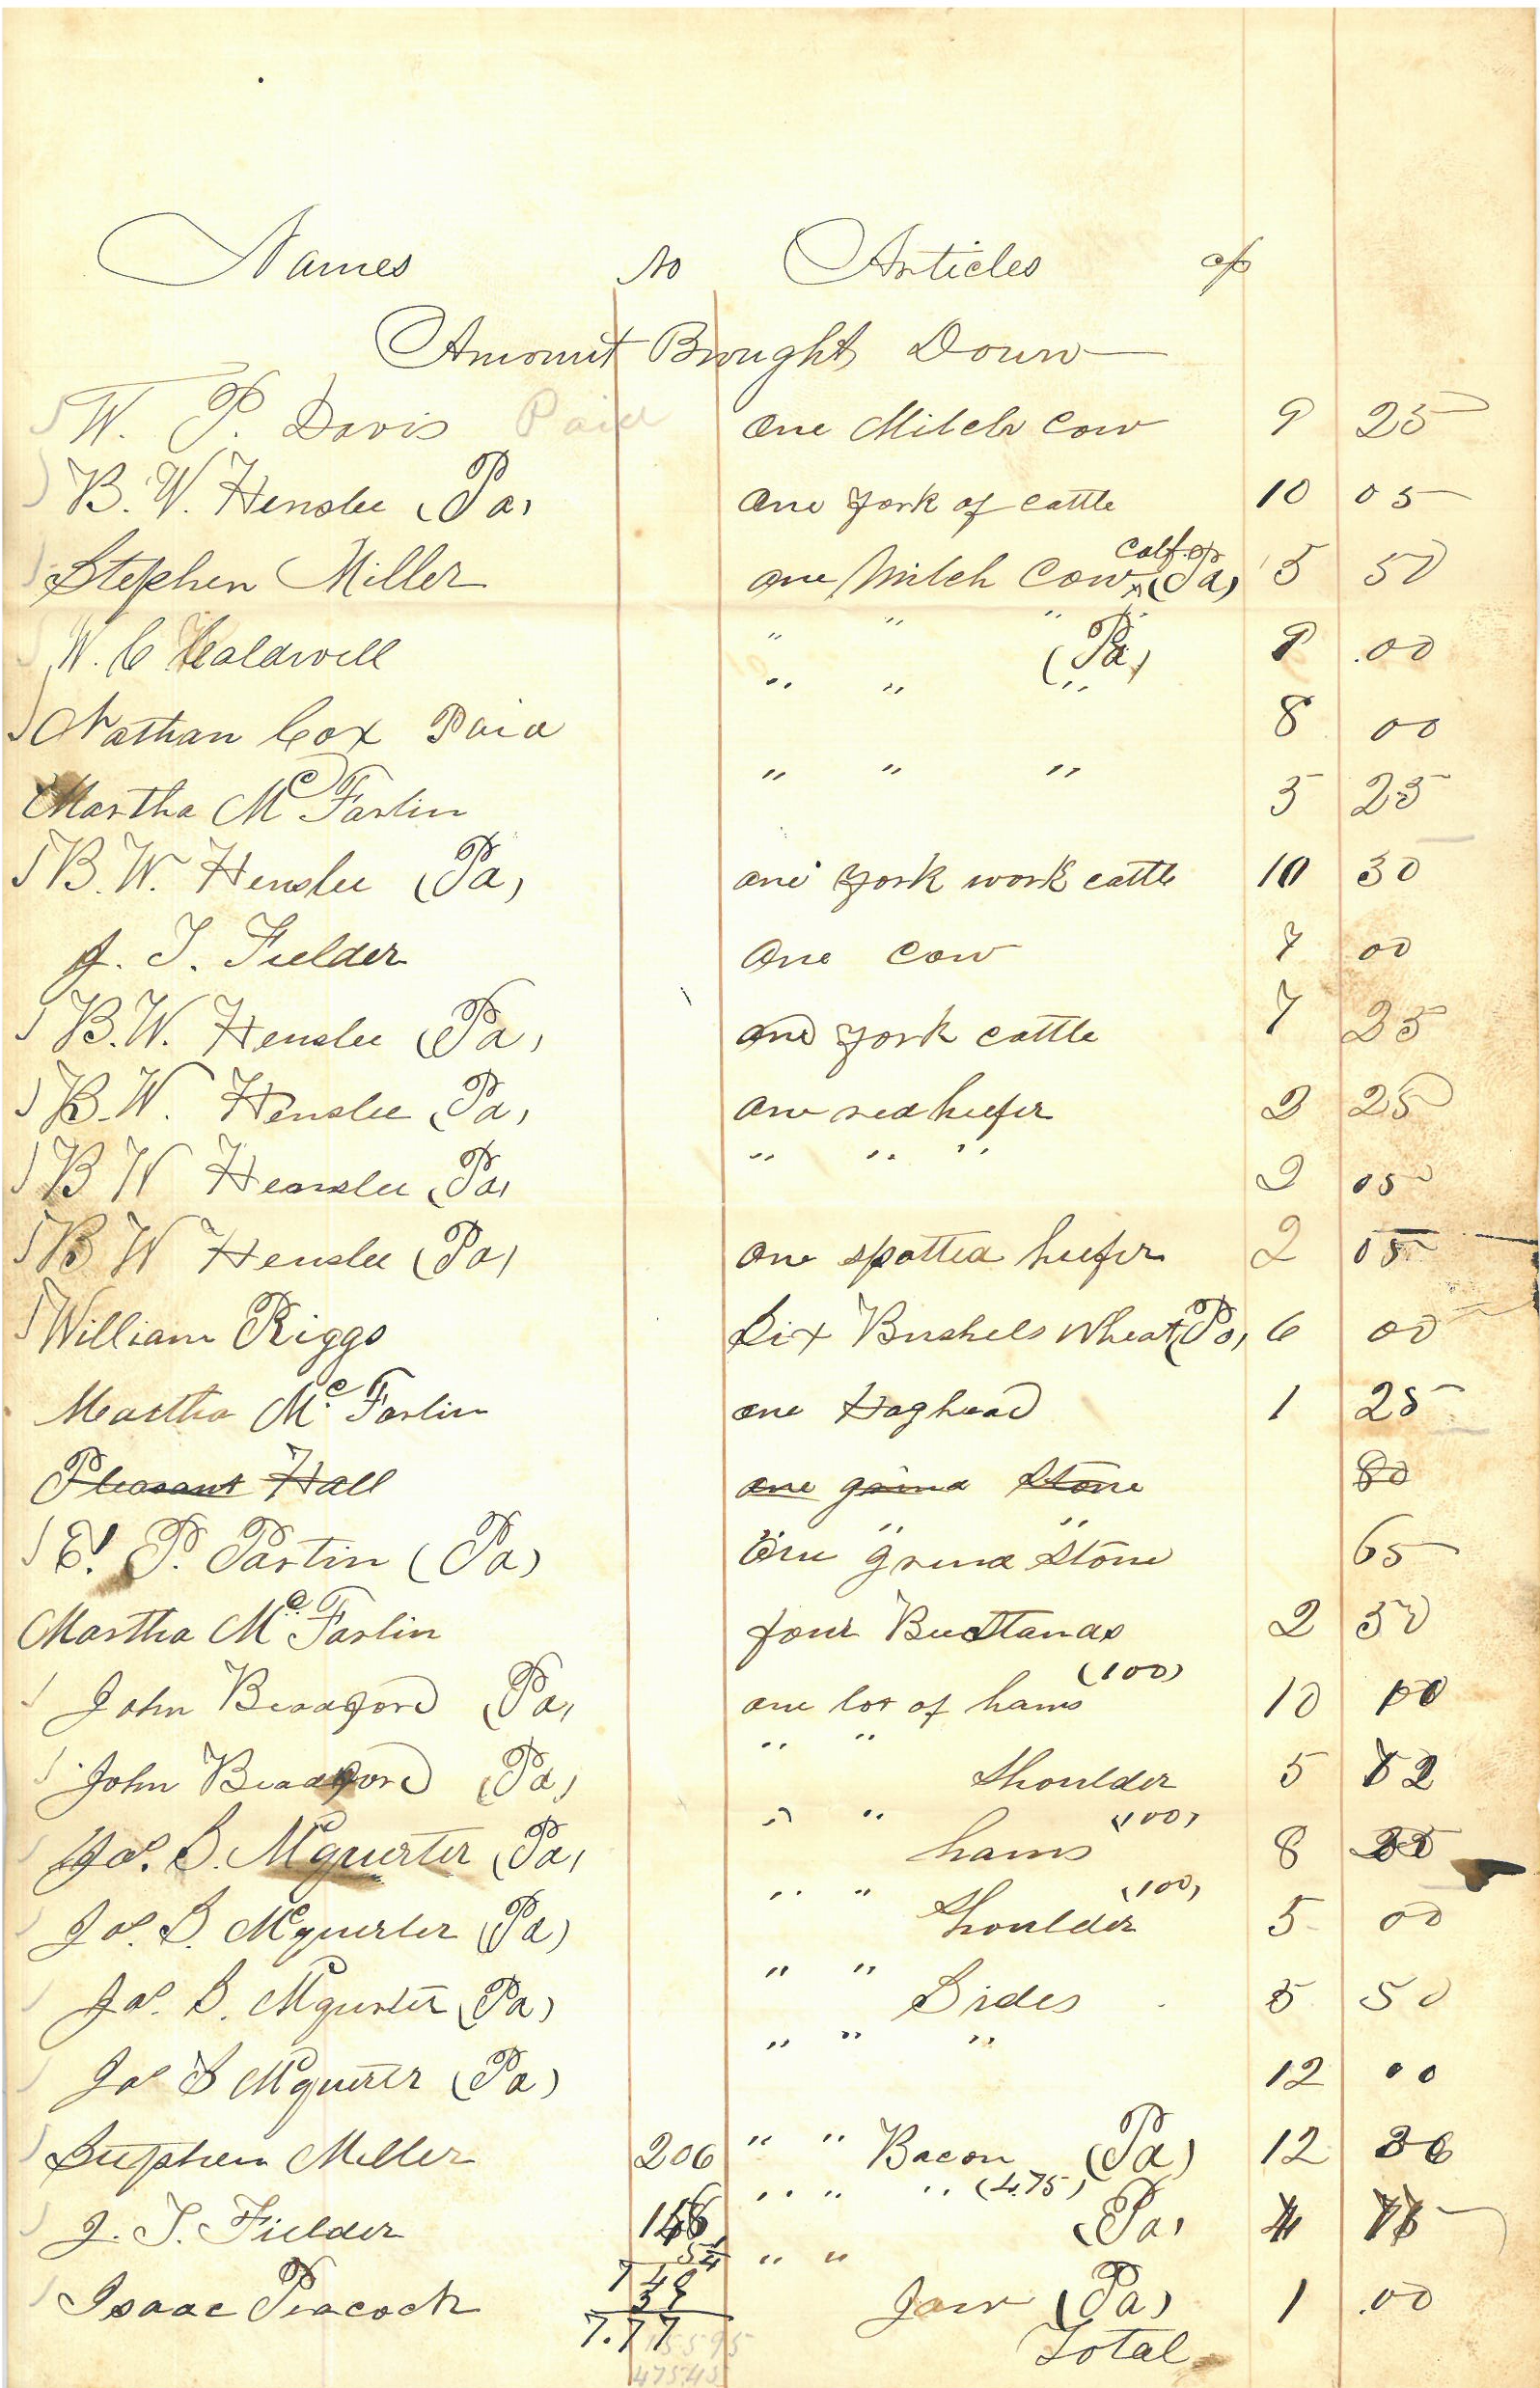 Names No Articles c/o
Amount Brought Down
W. P. Davis Paid one Milch Cow 9 25
B. W. Henslee (Pa) one york of cattle 10 05
Stephen Miller one Milch Cow calf (Pa) 5 50
W. C Caldwell " " " (Pa) 9 .00
Nathan Cox Paid " " " 8 00
Martha McFarlin " " " 5 25
B. W. Henslee (Pa) one york work cattle 10 30
J. T. Fielder One Cow 7 00
B. W. Henslee (Pa) one york cattle 7 25
B. W. Henslee (Pa) one red heefer 2 25
B W Henslee (Pa) " " " 2 05
B W Henslee (Pa) one spotted heefer 2 05
William Riggs Six Bushels Wheat (Pa) 6 00
Martha McFarlin one Hoghead 1 25
Pleasant Hall one grind Stone 80
E. P. Partin (Pa) One grind Stone 65
Martha McFarlin four Bee Stands 2 50
John Bradford (Pa) one lot of hams (100) 10 00
John Bradford (Pa) " " Shoulder 5 52
Jas. S. Mcguerter (Pa) " " hams (100) 8
Jas. S. Mcguerter (Pa) " " Shoulder (100) 5 00
Jas. S. Mcguerter (Pa) " " Sides 5 50
Jas S Mcguerter (Pa) " " " 12 00
Stephen Miller 206 " " Bacon (Pa) 12 36
J. T. Fielder " " " (475) (Pa) 4
Isaac Peacock " " Jaw (Pa) 1 .00
7.77 Total
47545